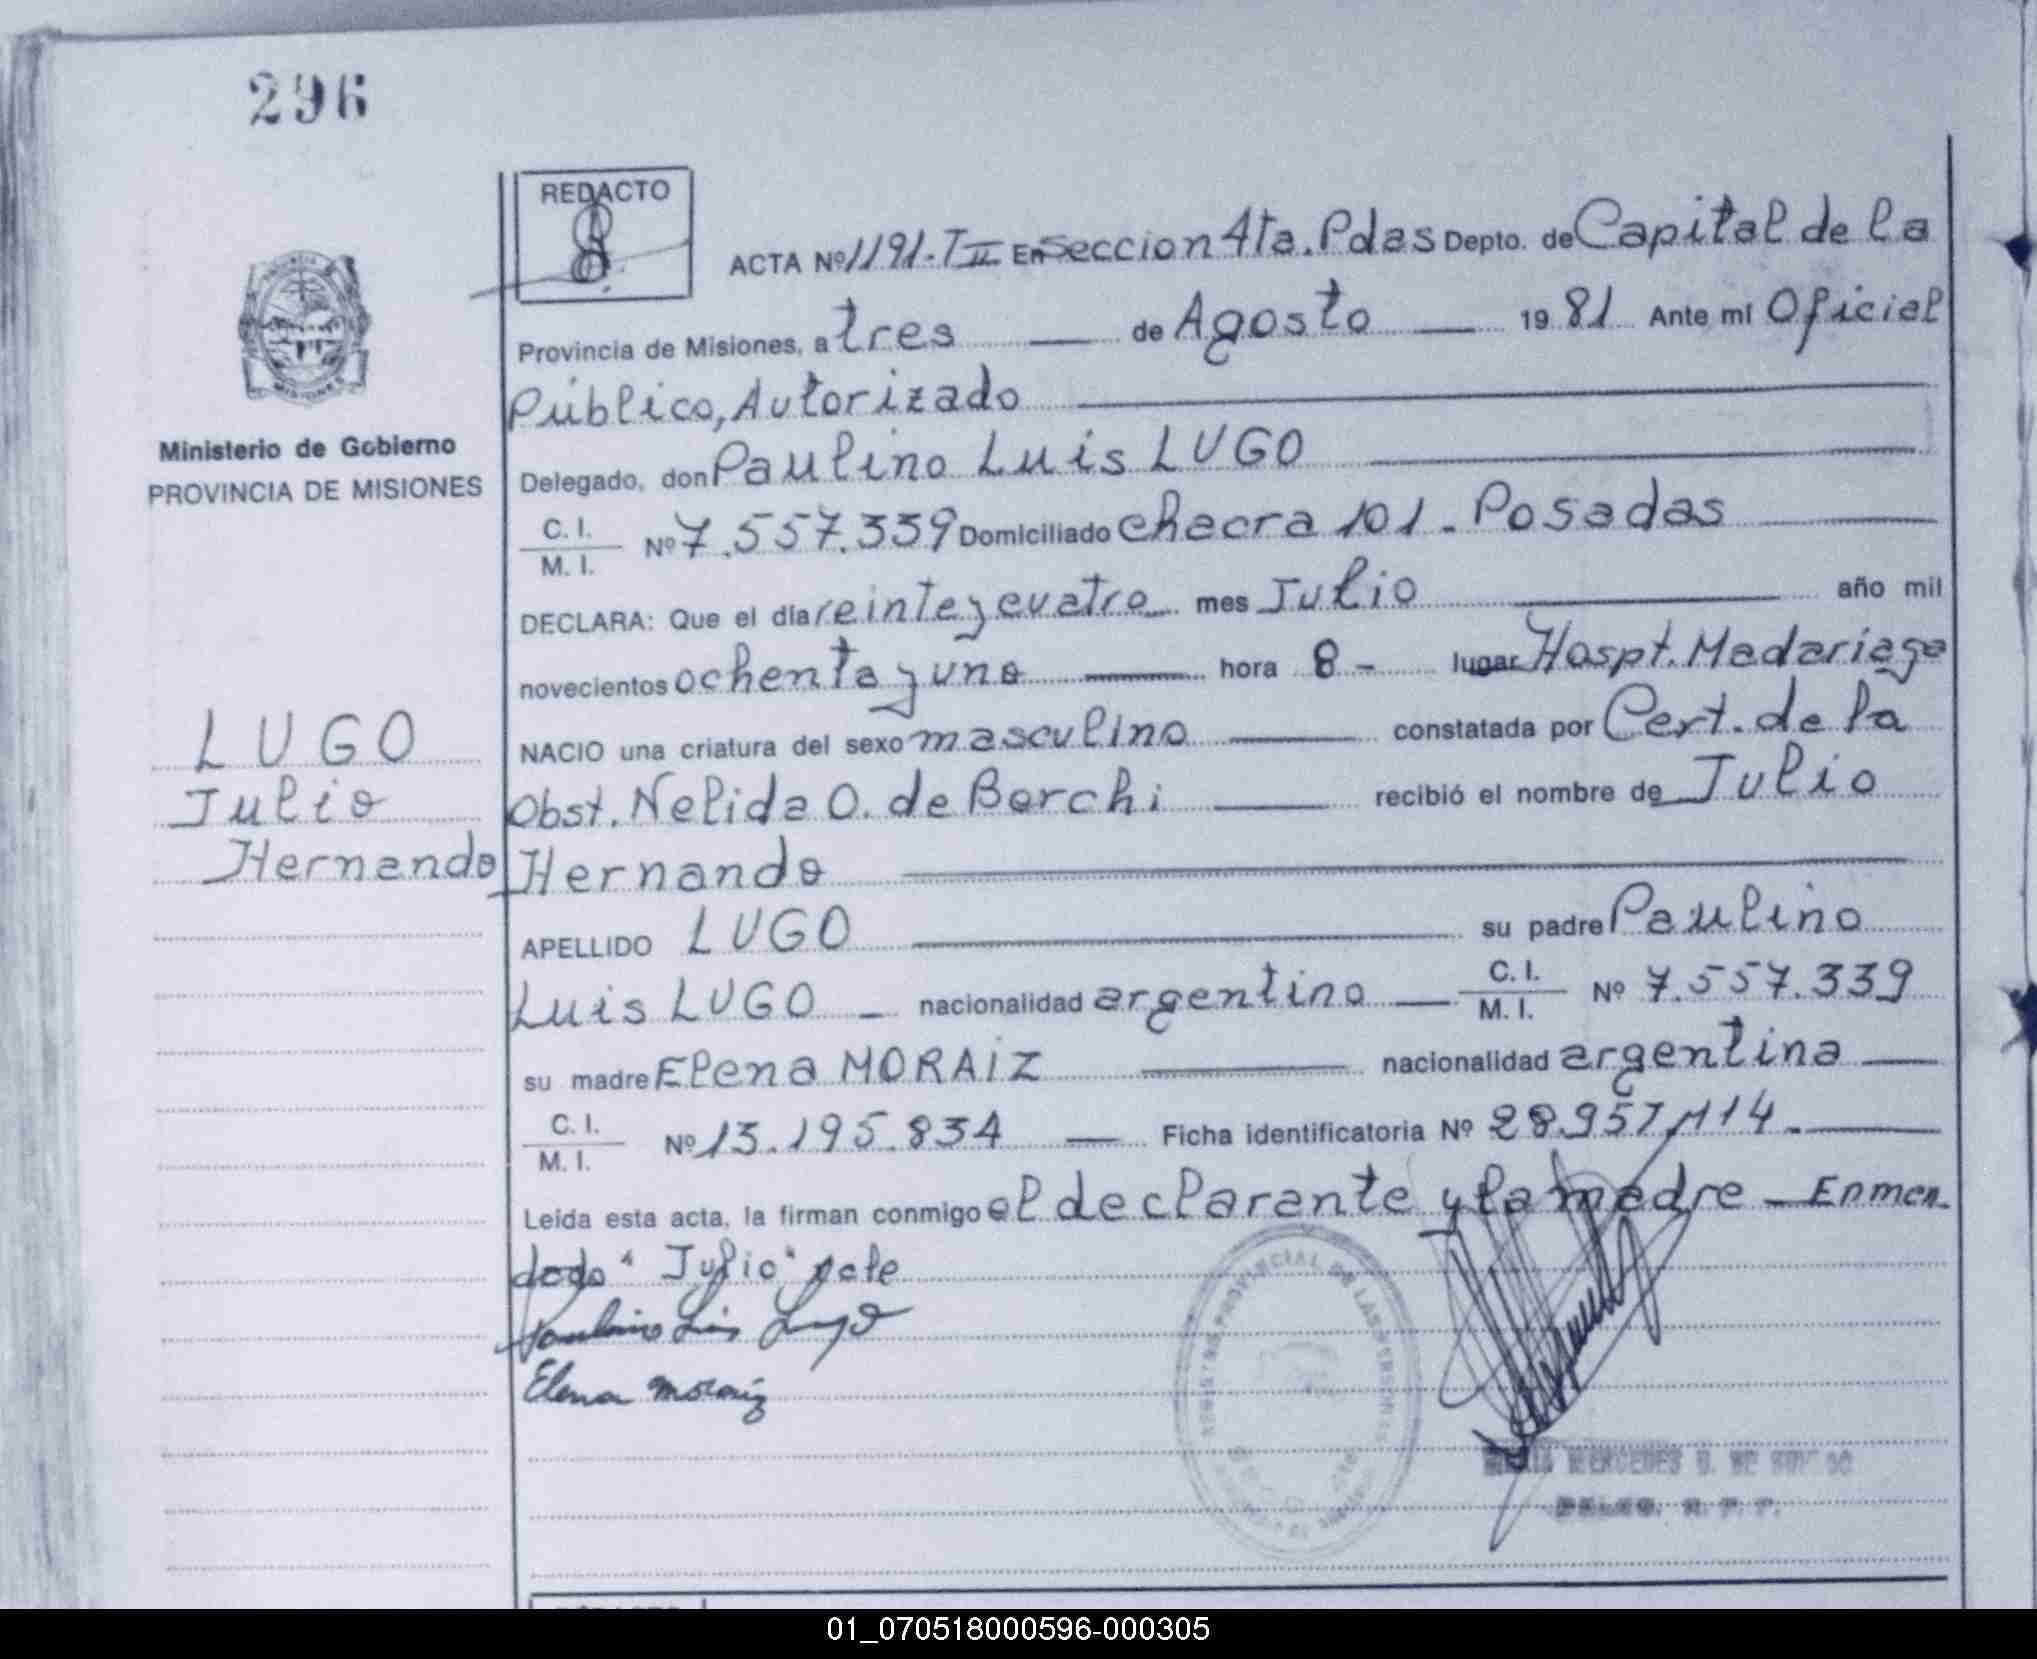 296
REDACTO
ACTA Nº 1191-T II En Seccion 4ta. Pdas Depto. de Capital de la
Provincia de Misiones, a tres de Agosto 1981 Ante mí Oficial
Público, Autorizado
Delegado, don Paulino Luis LUGO
C. I.
M. I. Nº 7.557.339 Domiciliado chacra 101 - Posadas
DECLARA: Que el día veinte y cuatro mes Julio año mil
novecientos ochenta y uno hora 8 - lugar Hospt. Madariaga
NACIO una criatura del sexo masculino constatada por Cert. de la
Obst. Nelida O. de Borchi recibió el nombre de Julio
Hernando
APELLIDO LUGO su padre Paulino
Luis LUGO nacionalidad argentino C. I.
M. I. Nº 7.557.339
su madre Elena MORAIZ nacionalidad argentina
C. I.
M. I. Nº 13.195.834 Ficha identificatoria Nº 28.957.114.
Leída esta acta, la firman conmigo el declarante y la madre - Enmen-
dado "Julio" vale
Paulino Luis Lugo
Elena Moraiz
Ministerio de Gobierno
PROVINCIA DE MISIONES
LUGO
Julio
Hernando
MISIONES
PROVINCIAL DE LAS PERSONAS
MERCEDES
01_070518000596-000305